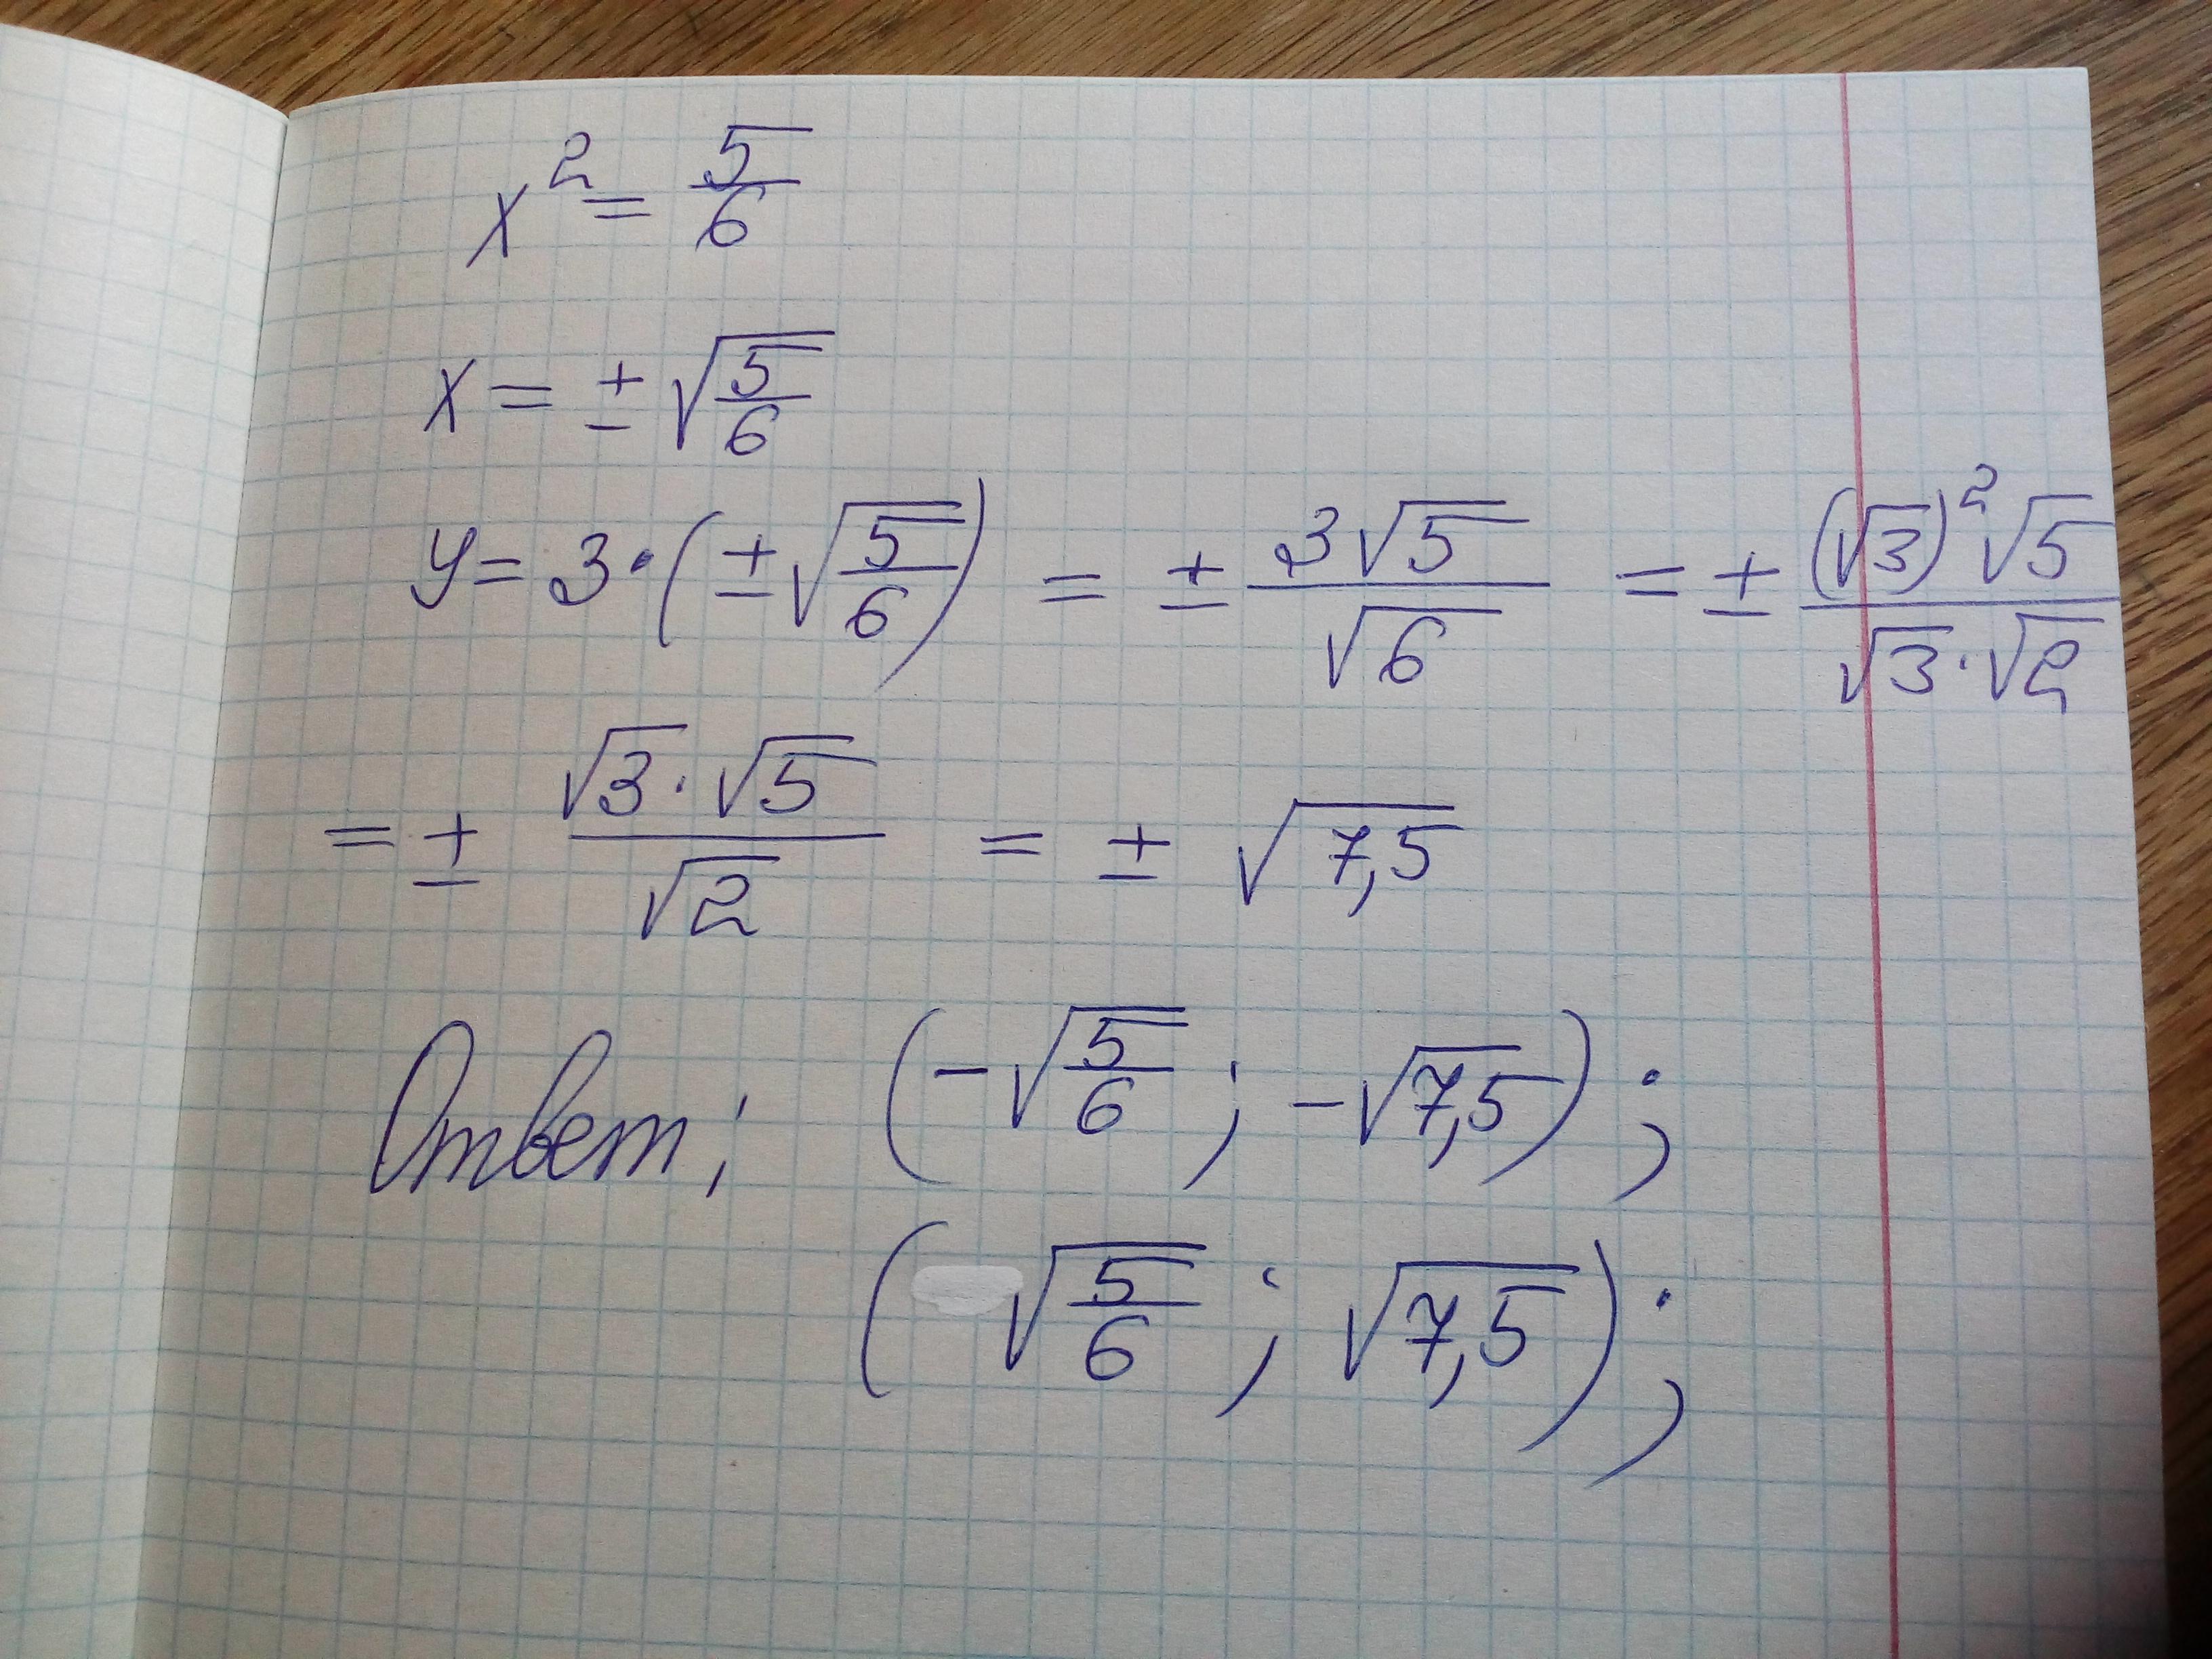 x² = 5/6
x = ± √(5/6)
y = 3·(± √(5/6)) = ± 3√5/√6 = ± (√3)²√5/(√3·√2)
= ± √3·√5/√2 = ± √7,5
Ответ: (-√(5/6); -√7,5);
(√(5/6); √7,5);